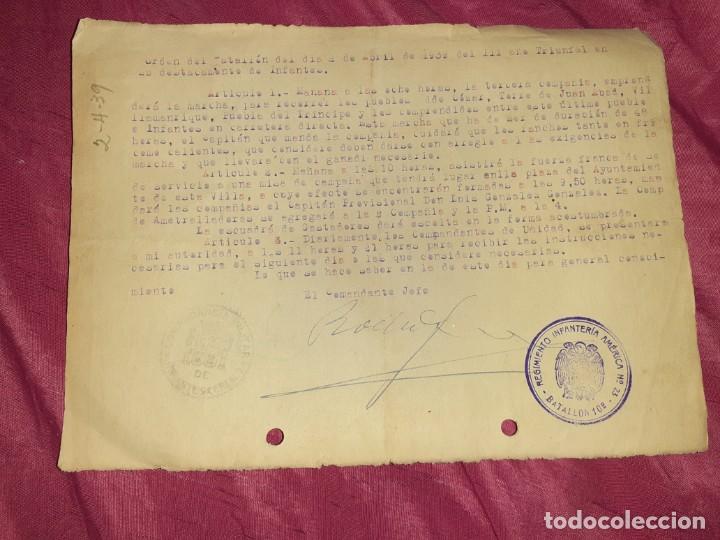 Orden del Batallón del dia 2 de Abril de 1939 III año Triunfal en
su destacamento de Infantes.
Articulo 1.- Mañana a las ocho horas, la tercera compañia, empren
derá la marcha, para recorrer los pueblos de Cózar, Torre de Juan Abad, Vil
llamanrique, Puebla del Principe y los comprendidos entre este último pueblo
e Infantes en carretera directa. Esta marcha que ha de ser de duración de 48
horas, el Capitán que manda la compañia, cuidará que los ranchos tanto en frí
como calientes, que considere deben darse con arreglo a las exigencias de la
marcha y que llevará con el ganado necesario.
Articulo 2.- Mañana a las 10 horas, asistirá la fuerza franca de
de servicio a una misa de campaña que tendrá lugar enlla plaza del Ayuntamien
to de esta Villa, a cuyo efecto se encontrarán formadas a las 9,50 horas, man
dará las compañias el Capitán Previsional Don Luis Gonzalez Gonzalez. La Comp
de Ametralladoras se agregará a la Compañia y la P.M. a la 4.
La escuadra de Gastadores dará escolta en la forma acostumbrada.
Articulo 3.- Diariamente los Comandantes de Unidad, se presentara
a mi autoridad, a las 11 horas y 21 horas para recibir las instrucciones ne-
cesarias para el siguiente dia o las que considere necesarias.
Lo que se hace saber en la de este dia para general conoci-
miento
El Comandante Jefe
2-4-39
DE
REGIMIENTO INFANTERÍA AMÉRICA Nº 23
- BATALLON 108 -
todocoleccion.net